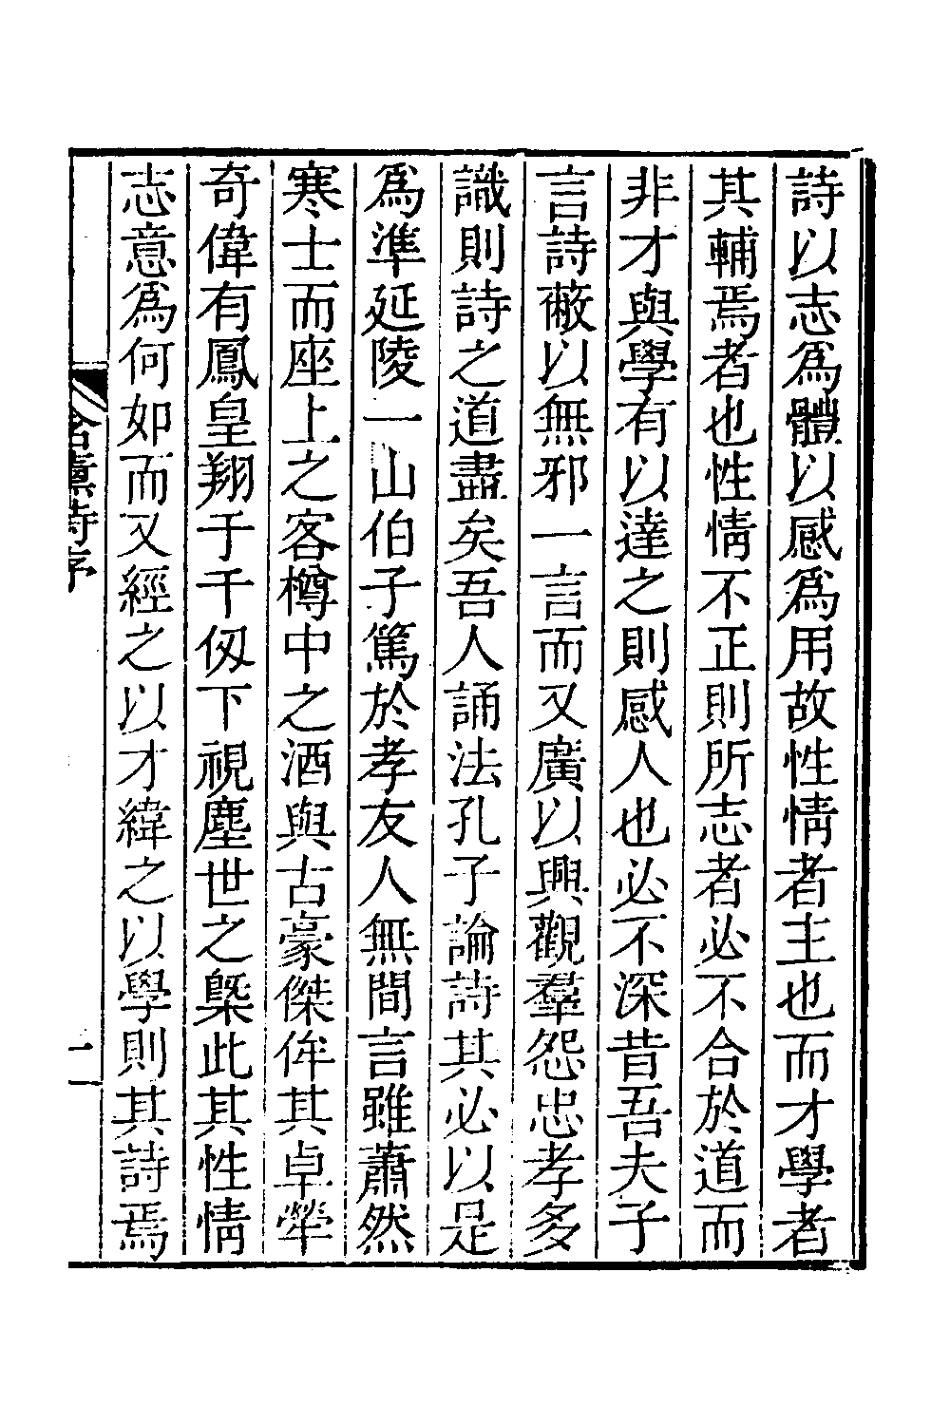 詩以志爲體以感爲用故性情者主也而才學者
其輔焉者也性情不正則所志者必不合於道而
非才與學有以達之則感人也必不深昔吾夫子
言詩蔽以無邪一言而又廣以興觀羣怨忠孝多
識則詩之道盡矣吾人誦法孔子論詩其必以是
爲準延陵一山伯子篤於孝友人無間言雖蕭然
寒士而座上之客樽中之酒與古豪傑侔其卓犖
奇偉有鳳皇翔于千仞下視塵世之槩此其性情
志意爲何如而又經之以才緯之以學則其詩焉
含真詩序
二